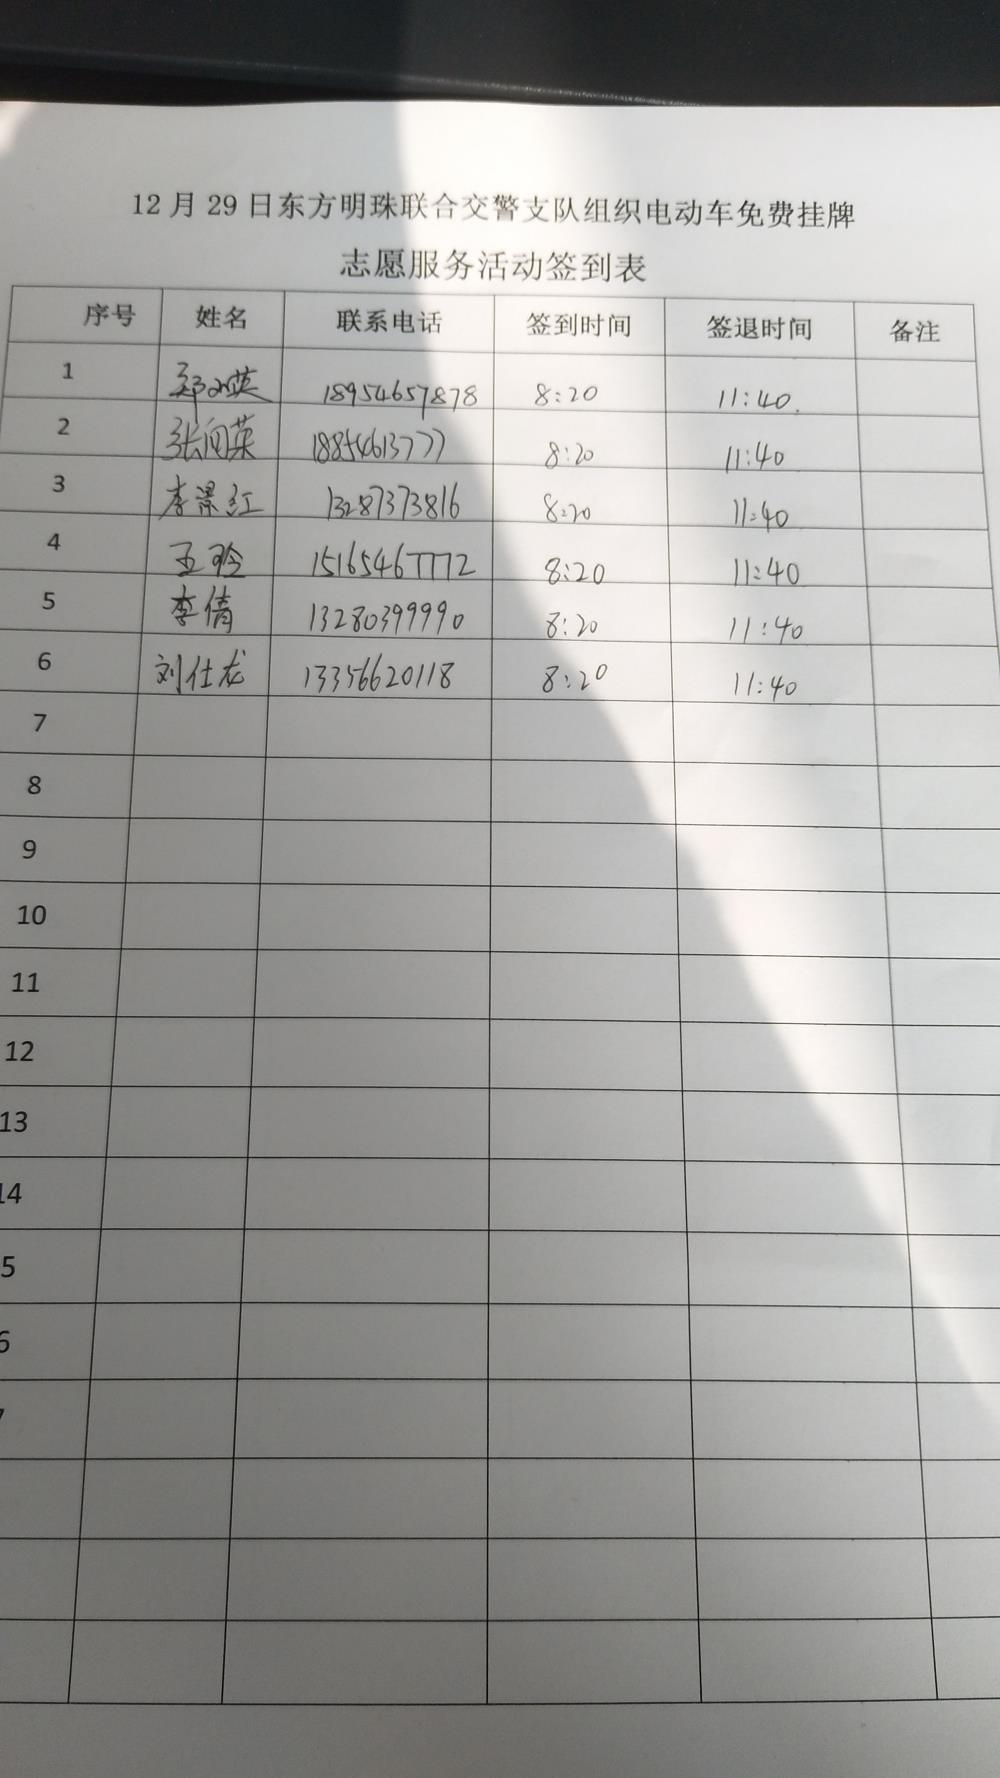 12月29日东方明珠联合交警支队组织电动车免费挂牌
志愿服务活动签到表
序号 姓名 联系电话 签到时间 签退时间 备注
1 18954657878 8:20 11:40
2 18854613777 8:20 11:40
3 13287373816 8:20 11:40
4 15165467772 8:20 11:40
5 李倩 13280399990 8:20 11:40
6 刘仕龙 13356620118 8:20 11:40
7
8
9
10
11
12
13
14
5
6
7